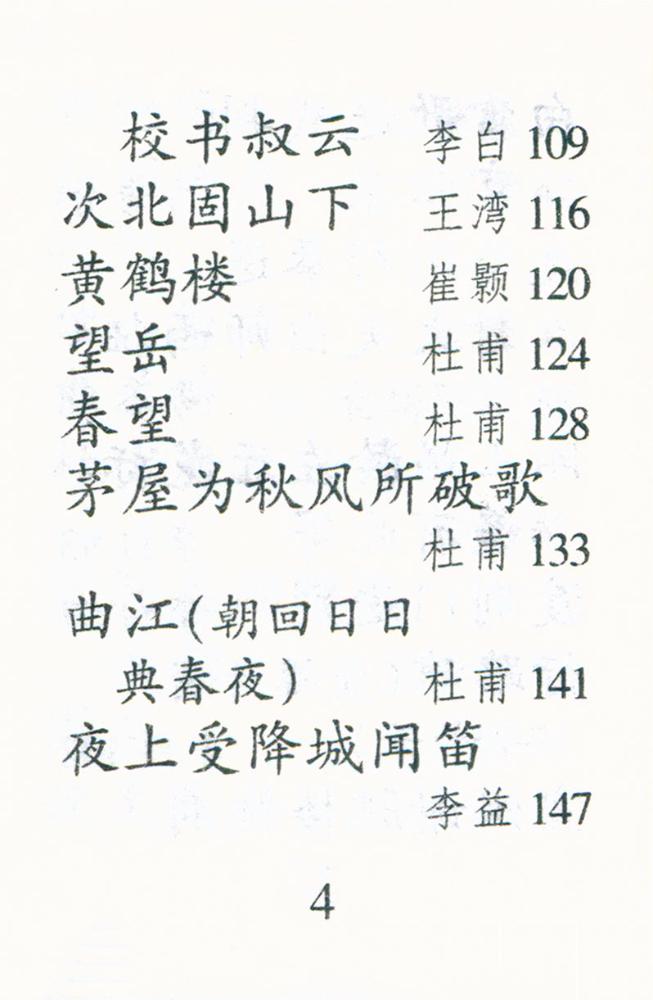 校书叔云 李白 109
次北固山下 王湾 116
黄鹤楼 崔颢 120
望岳 杜甫 124
春望 杜甫 128
茅屋为秋风所破歌
杜甫 133
曲江(朝回日日
典春夜) 杜甫 141
夜上受降城闻笛
李益 147
4